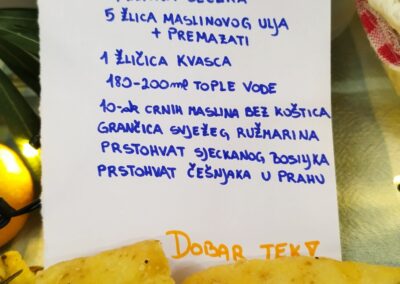 5 ŽLICA MASLINOVOG ULJA
+ PREMAZATI
1 ŽLIČICA KVASCA
180-200ml TOPLE VODE
10-ak CRNIH MASLINA BEZ KOŠTICA
GRANČICA SVJEŽEG RUŽMARINA
PRSTOHVAT SJECKANOG BOSILJKA
PRSTOHVAT ČEŠNJAKA U PRAHU
DOBAR TEK!